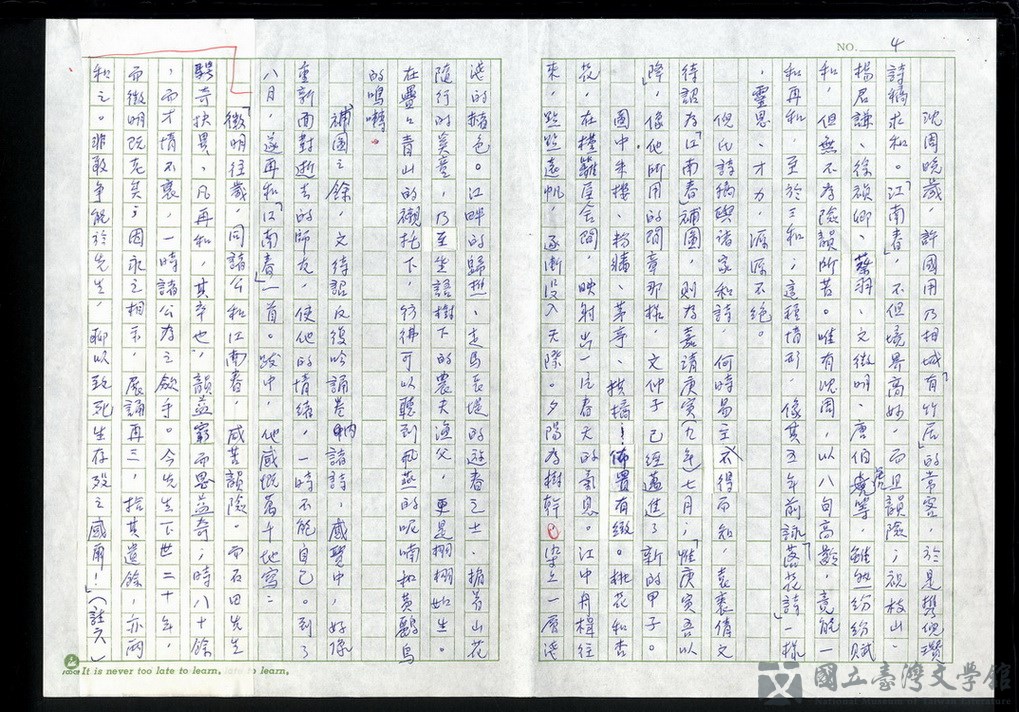 NO. 4
沈周晚歲，許國用乃相城有「竹居」的常客，於是攜倪瓚
詩稿求和。「江南春」，不但境界高妙，而且韻險；祝枝山、
楊君謙、徐禎卿、蔡羽、文徵明、唐伯虎等，雖然紛紛賦
和，但無不為險韻所苦。唯有沈周，以八句高齡，竟能一
和再和，至於三和；這種情形，像其五年前詠「落花詩」一樣
，靈思、才力，源源不絕。
倪氏詩稿與諸家和詩，何時易主不得而知，袁袠倩文
待詔為「江南春」補圖，則為嘉靖庚寅（九年）七月；「惟庚寅吾以
降」，像他所用的閒章那樣，文仲子已經邁進了新的甲子。
圖中朱樓、粉牆、茅亭、拱橋，佈置有緻。桃花和杏
花，在槿籬屋舍間，映射出一片春天的氣息。江中舟楫往
來，點點遠帆，逐漸沒入天際。夕陽為樹幹染上一層淺
淺的赭色。江畔的歸樵、走馬長堤的遊春之士、揹著山花
隨行的奚童，乃至坐語樹下的農夫漁父，更是栩栩如生。
在疊疊青山的襯托下，彷彿可以聽到飛燕的呢喃和黃鸝鳥
的鳴囀。
補圖之餘，文待詔反復吟誦卷中諸詩，感覺中，好像
重新面對逝去的師友，使他的情緒，一時不能自已。到了
八月，遂再和「江南春」一首。跋中，他感慨萬千地寫：
「徵明往歲，同諸公和江南春，咸苦韻險。而石田先生
騁奇抉異，凡再和，其卒也，韻益窮而思益奇；時八十餘
，而才情不衰，一時諸公為之斂手。今先生下世二十年，
而徵明既老矣；因永之相示，展誦再三，拾其遺餘，亦兩
和之。非敢爭能於先生，聊以致死生存歿之感爾！」（註六）
It is never too late to learn.
國立臺灣文學館
National Museum of Taiwan Literature